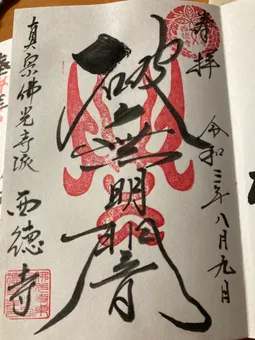 奉拝
令和三年八月九日
破無明闇
真宗佛光寺派
西德寺